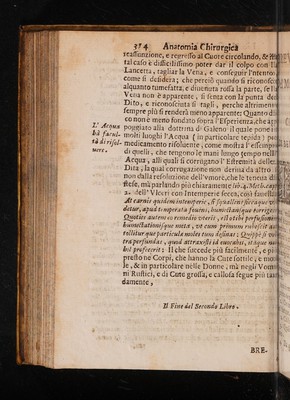 314 Anatomia Chirurgica
reassunzione, e regresso al Cuore circolando, & in
tal caso è difficilissimo poter dar il colpo con la
Lancetta, tagliar la Vena, e conseguir l'intento,
come si desidera; che perciò quando si riconosce
alquanto tumefatta, e divenuta rossa la parte, se la
Vena non è apparente, si senta con la punta del
Dito, e riconosciuta si tagli, perche altrimente
sempre più si renderà meno apparente; Quanto dico
non è meno fondato sopra l'Esperienza, che ap-
poggiato alla dottrina di Galeno il quale pone in
molti luoghi l'Acqua (in particolare tepida) per
medicamento risoluente, come mostra l'essempio
di quelli, che tengono le mani lungo tempo nell'
Acqua, alli quali si corrugano l'Estremità delle
Dita, la qual corrugazione non deriva da altro se
non dalla resoluzione dell'umore, che le teneua di
stese, mà parlando più chiaramente
2. dell' Vlceri con Intemperie secca, così
At carnis quidem intemperie,
detur, apud
Quoties autem eo remedio vteris,
humectationisque notæ, vt cum primum rubescit
tollitur que particula moles tum desinas:
tra perfundas, quod attraxisti id euocabis,
hil profeceris: Il che succede più facilmente, e più
presto ne Corpi, che hanno la Cute sottile, e mol-
le, & in particolare nelle Donne, mà negli Vomi-
ni Rustici, e di Cute grossa, e callosa segue più tar-
damente,
L' Acqua
hà facul-
tà di risol-
uere.
Il Fine del Secondo Libro.
BRE-